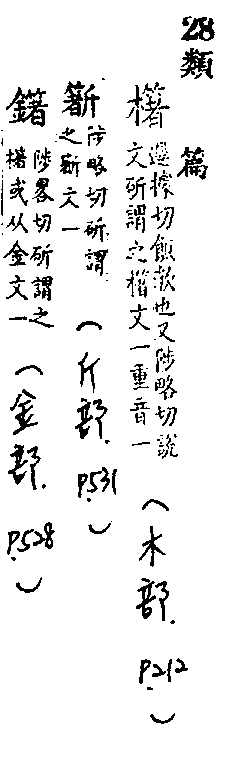 28類 篇
櫡 遲據切飯欹也又陟略切說
文斫謂之櫡文一重音一
(木部. P.212)
陟略切斫謂
之 文一
(斤部. P.531)
鐯 陟畧切斫謂之
櫡或从金文一
(金部. P.528)